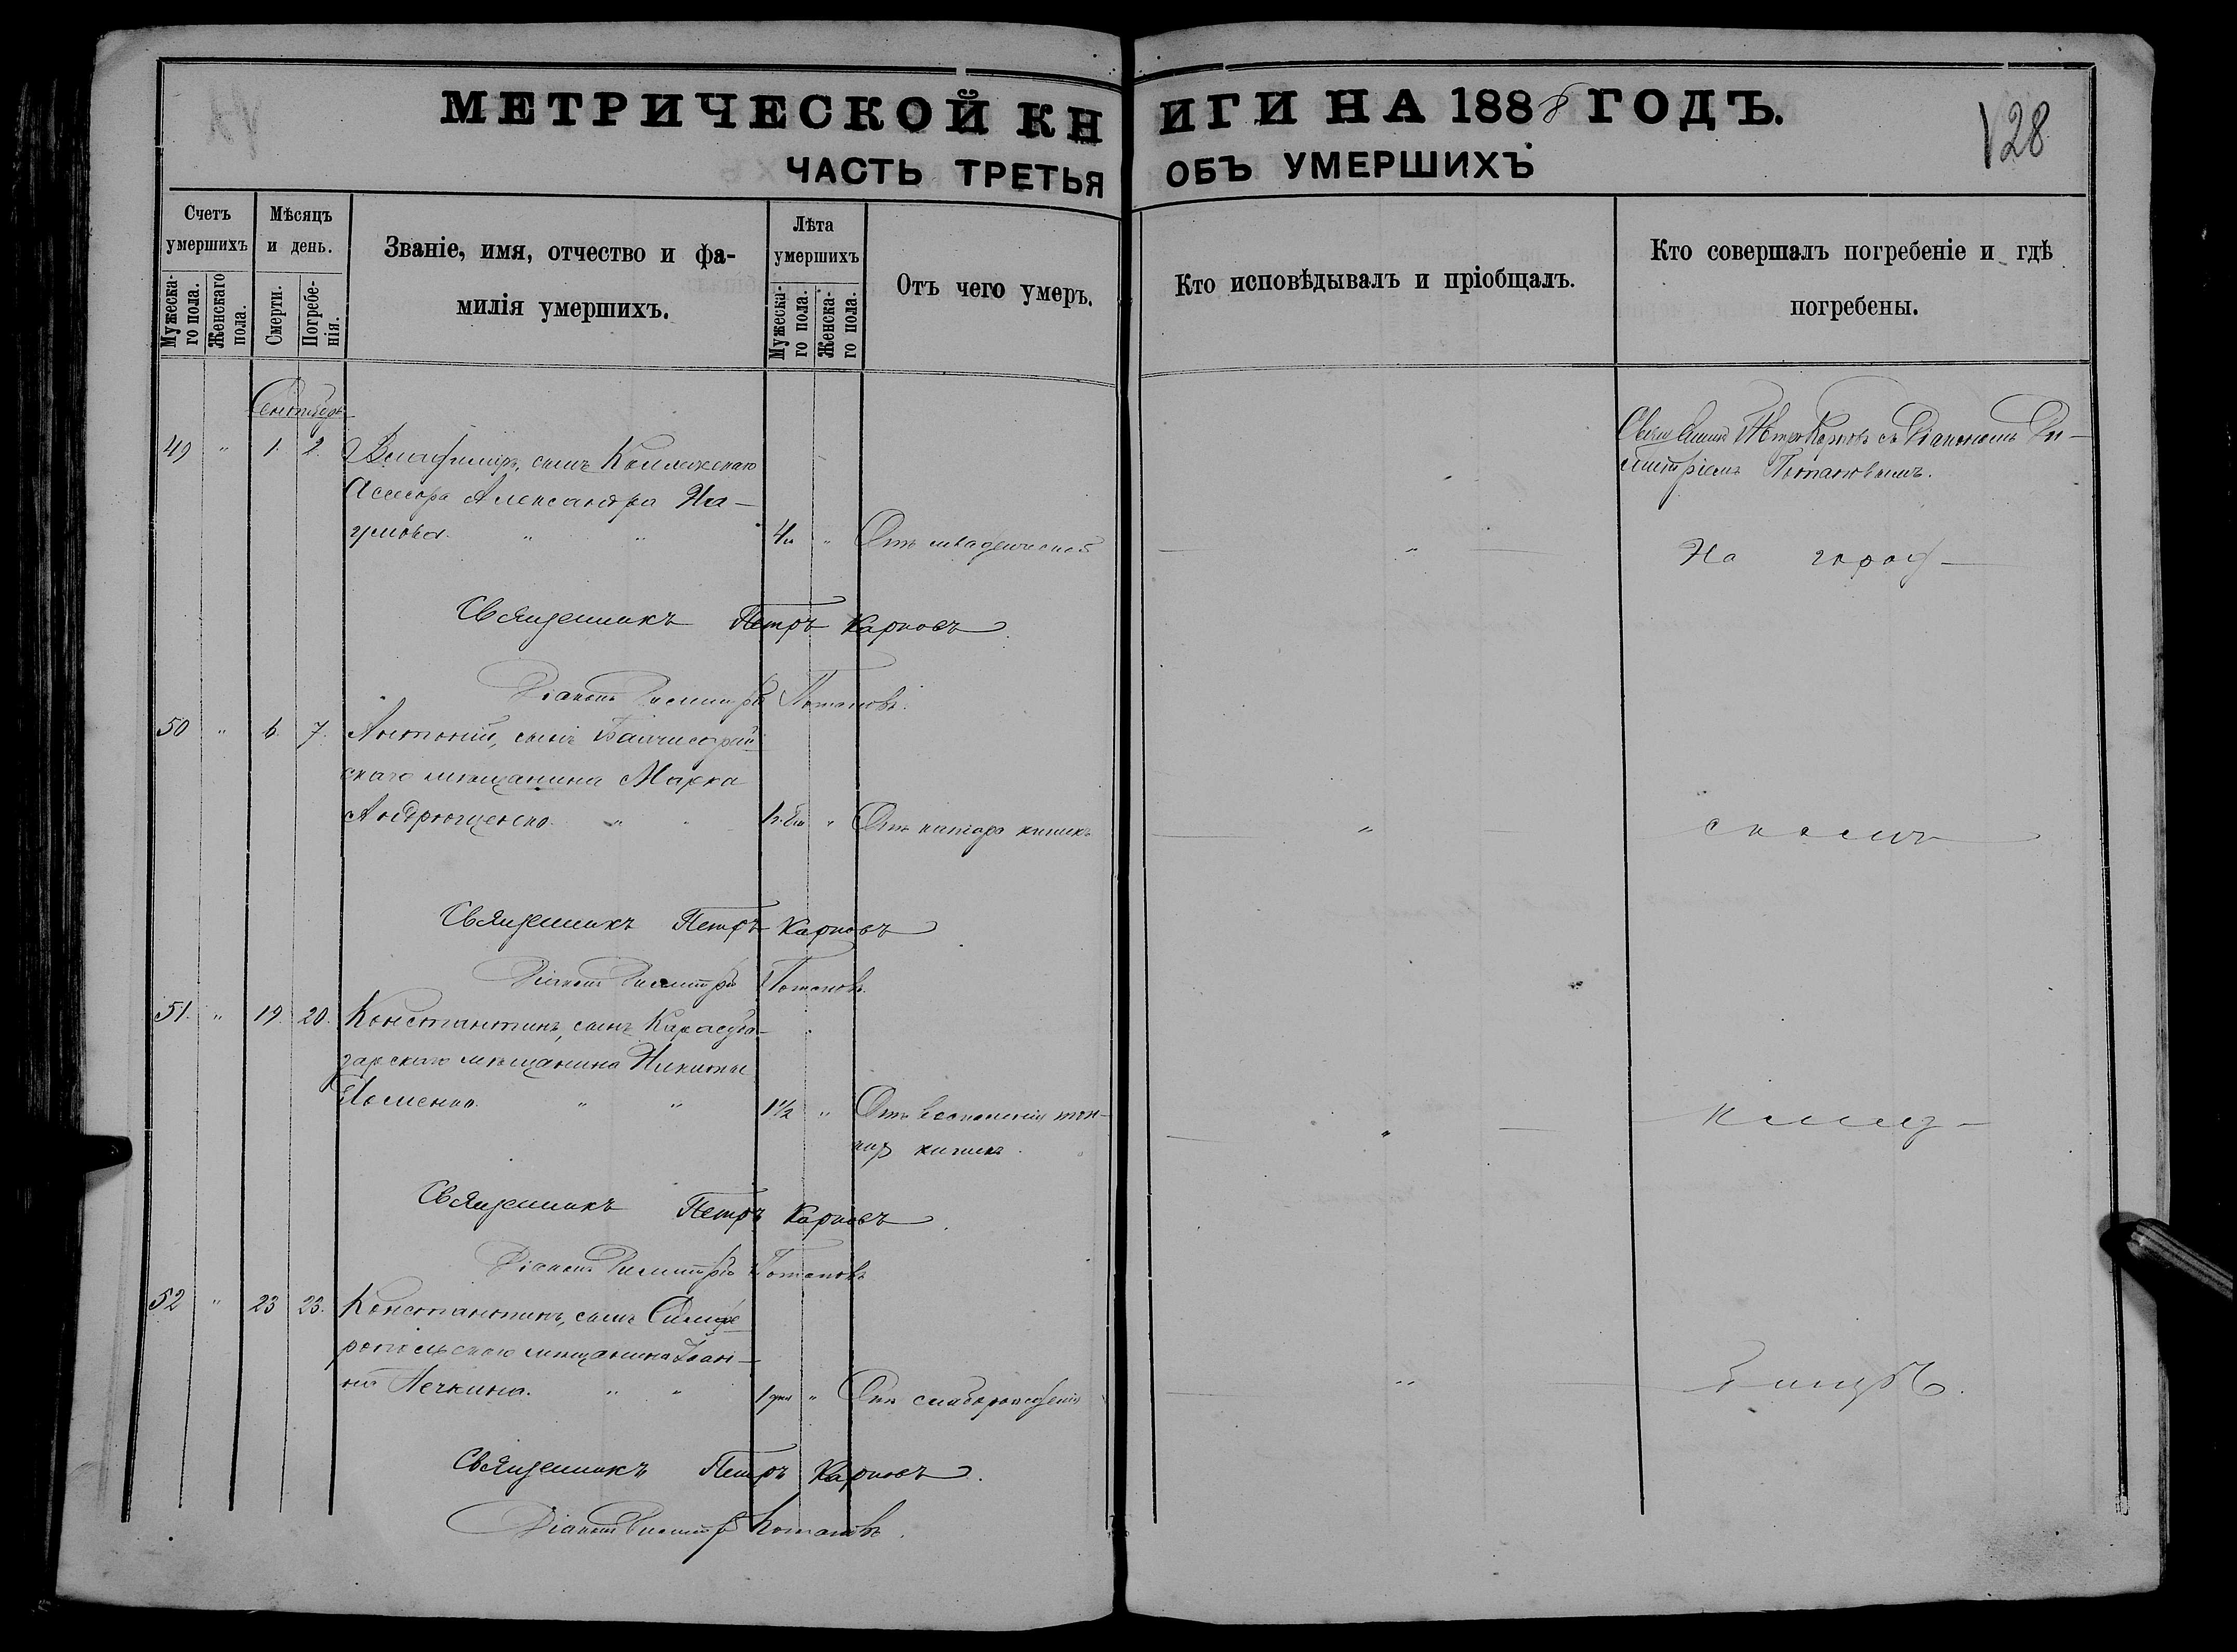 МЕТРИЧЕСКОЙ КНИГИ НА 1888 ГОДЪ.
128
ЧАСТЬ ТРЕТЬЯ ОБЪ УМЕРШИХЪ
Счетъ умершихъ
Мужескаго пола.
Женскаго пола.
Мѣсяцъ и день.
Смерти.
Погребенія.
Званіе, имя, отчество и фамилія умершихъ.
Лѣта умершихъ
Мужескаго пола.
Женскаго пола.
Отъ чего умеръ.
Кто исповѣдывалъ и пріобщалъ.
Кто совершалъ погребеніе и гдѣ погребены.
Сентябрь
49 " 1. 2. Владиміръ, сынъ Коллежскаго
Асесора Александра На-
умова. " " 4 м " Отъ младенческой
Петръ Карповъ съ Діакономъ Ди-
митріемъ Потаповымъ.
На город-
Священникъ Петръ Карповъ
Діаконъ Димитрій Потаповъ.
50 " 6. 7. Антоній, сынъ Бахчисарай-
скаго мѣщанина Марка
Андрющенко " " Отъ катара кишекъ
скомъ
Священникъ Петръ Карповъ
Діаконъ Димитрій Потаповъ.
51. " 19. 20. Константинъ, сынъ Карасуба-
зарскаго мѣщанина Никиты
" " 1½ " Отъ воспаленія тон-
кихъ кишекъ.
клад-
Священникъ Петръ Карповъ
Діаконъ Димитрій Потаповъ
52 " 23 23. Константинъ, сынъ Симфе-
ропольскаго мѣщанина Іоан-
на Печкина. " " 1 дня " Отъ слаборожденія
бищѣ.
Священникъ Петръ Карповъ.
Діаконъ Димитрій Потаповъ.